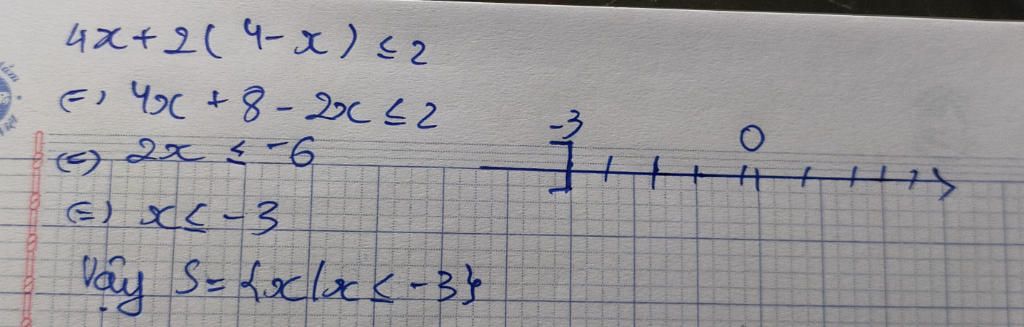 4x + 2(4 - x) ≤ 2
⇔ 4x + 8 - 2x ≤ 2
⇔ 2x ≤ -6
⇔ x ≤ -3
Vậy S = {x/x ≤ -3}
-3 0